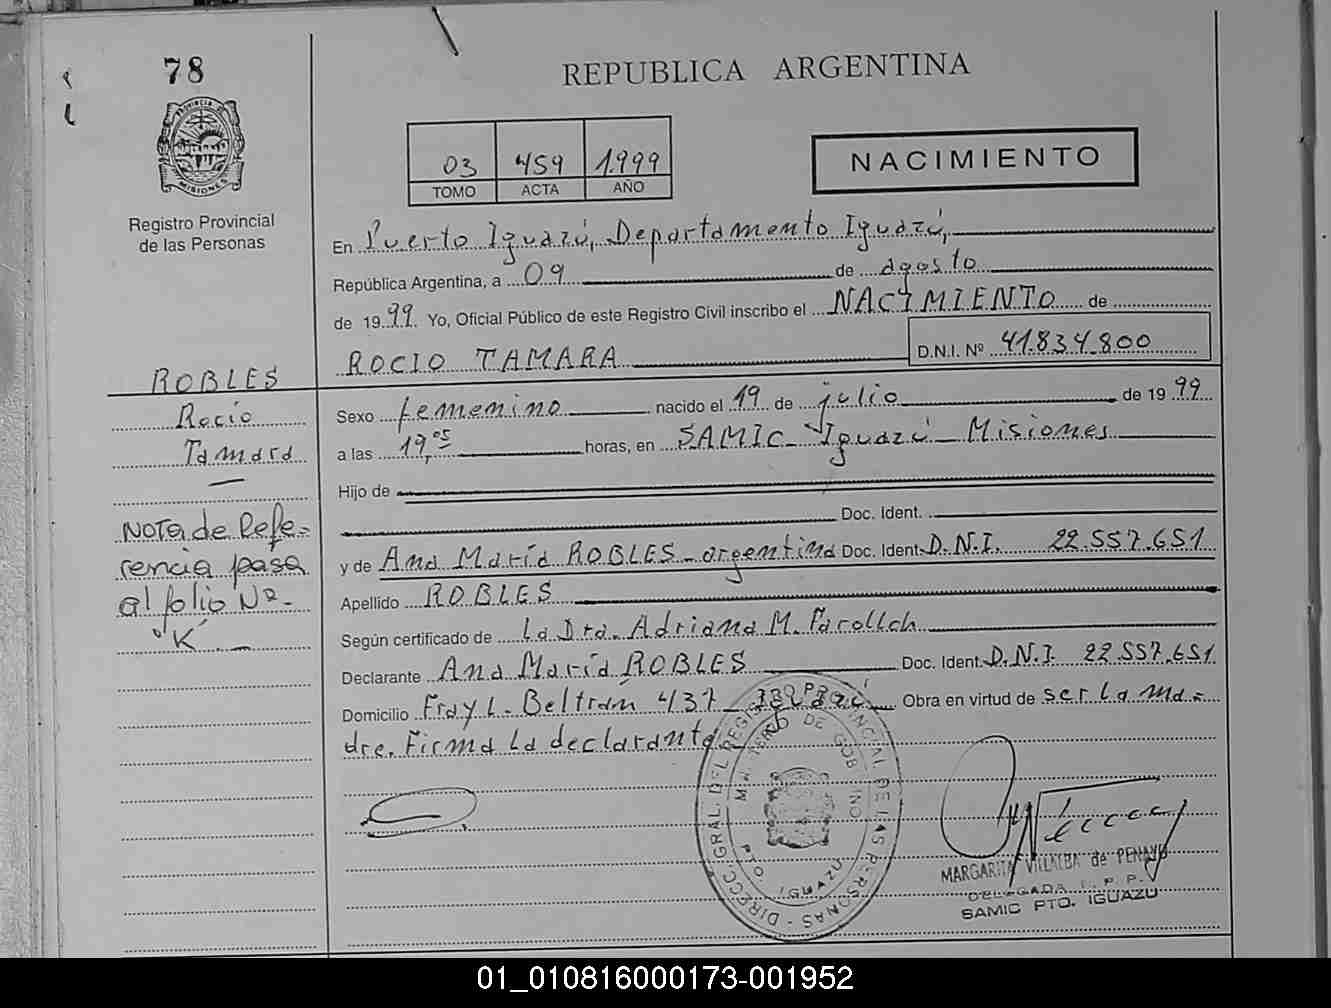 78
REPUBLICA ARGENTINA
PROVINCIA DE
MISIONES
Registro Provincial
de las Personas
03 459 1.999
TOMO ACTA AÑO
NACIMIENTO
En Puerto Iguazú, Departamento Iguazú,
República Argentina, a 09 de agosto
de 1999. Yo, Oficial Público de este Registro Civil inscribo el NACIMIENTO de
ROCIO TAMARA D.N.I. Nº 41.834.800
ROBLES
Rocio
Tamara
Nota de Refe-
rencia pasa
al folio Nº-
"K".-
Sexo femenino nacido el 19 de julio de 1999
a las 19,05 horas, en SAMIC - Iguazú - Misiones
Hijo de
Doc. Ident.
y de Ana María ROBLES - argentina Doc. Ident. D.N.I. 22.557.651
Apellido ROBLES
Según certificado de La Dra. Adriana M.
Declarante Ana María ROBLES Doc. Ident. D.N.I. 22.557.651
Domicilio Fray L. Beltrán 437 - Iguazú Obra en virtud de ser la ma-
dre. Firma la declarante
DIRECC. GRAL. DEL REGISTRO PROVINCIAL DE LAS PERSONAS
DE GOBIERNO
PTO. IGUAZU
MARGARITA VILLALBA de PENAYO
DELEGADA
SAMIC PTO. IGUAZU
01_010816000173-001952